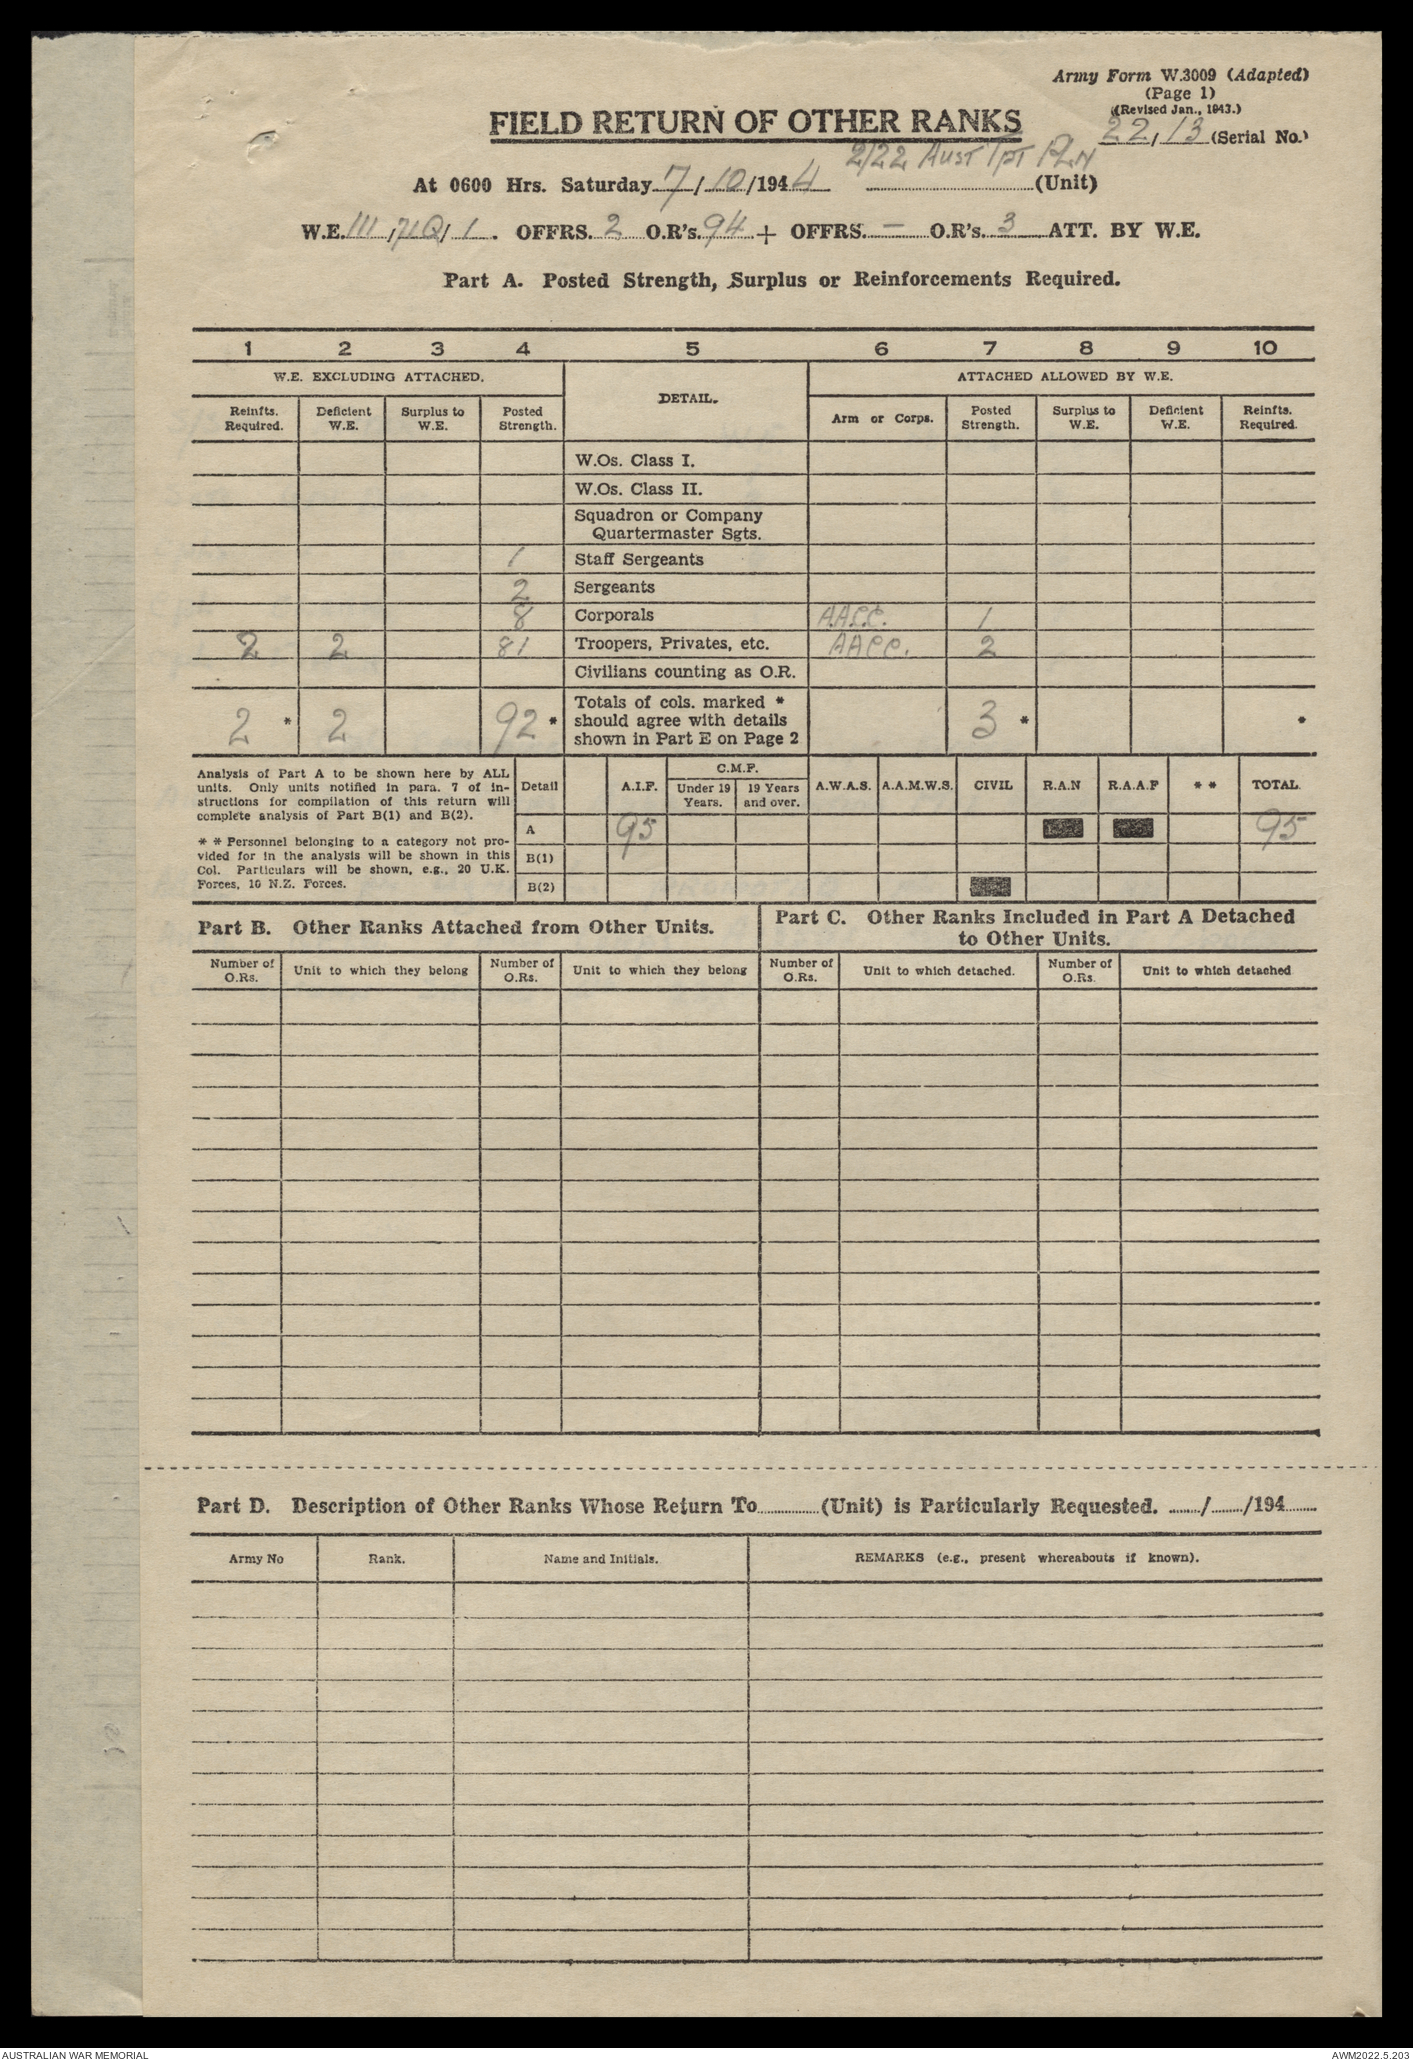 Army Form W.3009 (Adapted)
(Page 1)
(Revised Jan., 1943.)
FIELD RETURN OF OTHER RANKS
22/13 (Serial No.)
2/22 AUST TPT PLN
At 0600 Hrs. Saturday 7/10/1944 (Unit)
W.E. III / / 1. OFFRS. 2 O.R's. 94 + OFFRS. — O.R's. 3 ATT. BY W.E.
Part A. Posted Strength, Surplus or Reinforcements Required.
1 2 3 4 5 6 7 8 9 10
W.E. EXCLUDING ATTACHED. DETAIL. ATTACHED ALLOWED BY W.E.
Reinfts. Required. Deficient W.E. Surplus to W.E. Posted Strength. Arm or Corps. Posted Strength. Surplus to W.E. Deficient W.E. Reinfts. Required.
W.Os. Class I.
W.Os. Class II.
Squadron or Company
Quartermaster Sgts.
1 Staff Sergeants
2 Sergeants
8 Corporals A.A.C.C. 1
2 2 81 Troopers, Privates, etc. A.A.C.C. 2
Civilians counting as O.R.
Totals of cols. marked *
should agree with details
shown in Part E on Page 2
2 * 2 92 * 3 * *
Analysis of Part A to be shown here by ALL
units. Only units notified in para. 7 of in-
structions for compilation of this return will
complete analysis of Part B(1) and B(2).
* * Personnel belonging to a category not pro-
vided for in the analysis will be shown in this
Col. Particulars will be shown, e.g., 20 U.K.
Forces, 10 N.Z. Forces.
Detail A.I.F. C.M.F. Under 19 Years. 19 Years and over. A.W.A.S. A.A.M.W.S. CIVIL R.A.N R.A.A.F * * TOTAL.
A 95 95
B(1)
B(2)
Part B. Other Ranks Attached from Other Units.
Part C. Other Ranks Included in Part A Detached
to Other Units.
Number of O.Rs. Unit to which they belong Number of O.Rs. Unit to which they belong Number of O.Rs. Unit to which detached. Number of O.Rs. Unit to which detached
Part D. Description of Other Ranks Whose Return To (Unit) is Particularly Requested. / /194
Army No Rank. Name and Initials. REMARKS (e.g., present whereabouts if known).
AUSTRALIAN WAR MEMORIAL
AWM2022.5.203